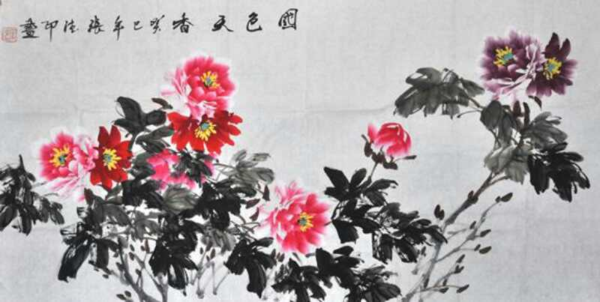 國色天香 癸巳年張法印畫